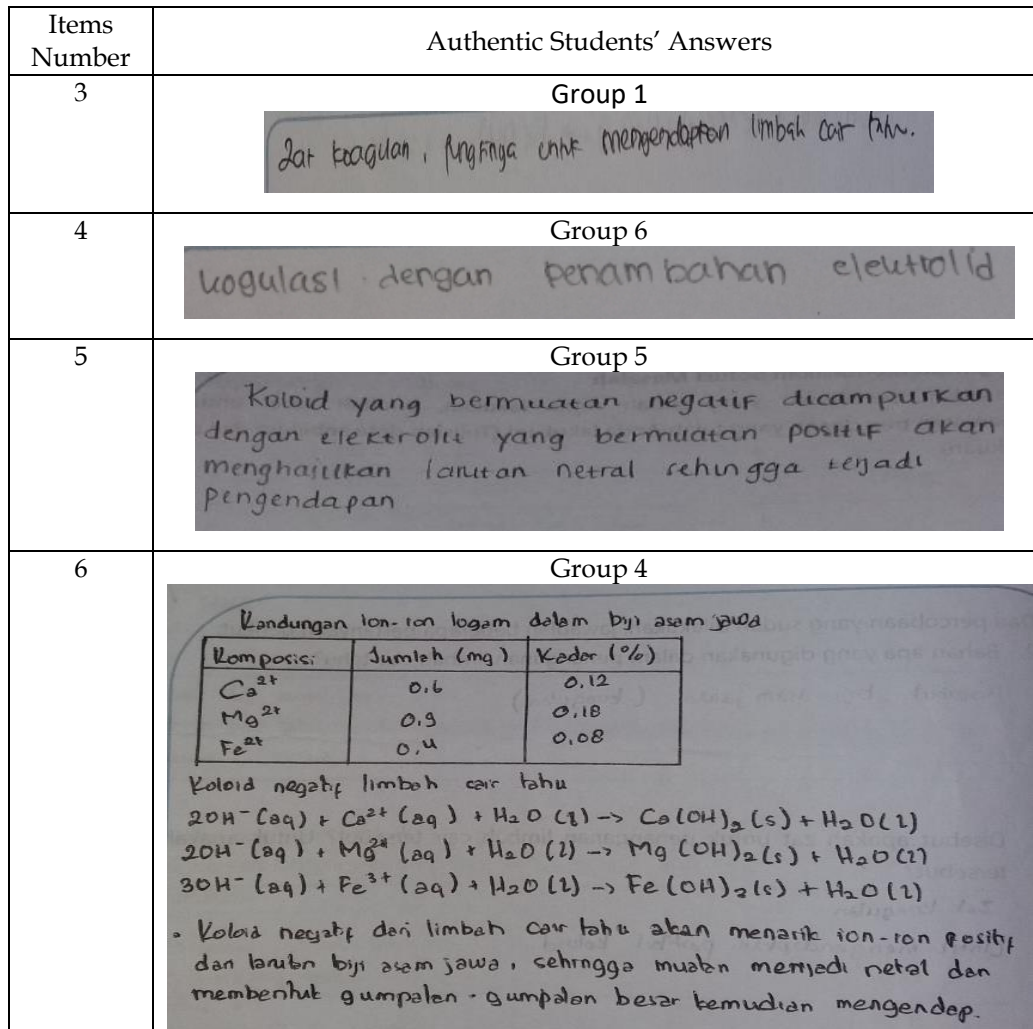 Items Number
Authentic Students' Answers
3
Group 1
Zat koagulan, fungsinga untuk mengendapkan limbah cair tahu.
4
Group 6
kogulasi dengan penambahan elektrolid
5
Group 5
Koloid yang bermuatan negatif dicampurkan
dengan elektrolit yang bermuatan positif akan
menghasilkan larutan netral sehingga terjadi
pengendapan
6
Group 4
Kandungan ion-ion logam dalam biji asam jawa
Komposisi Jumlah (mg) Kadar (%)
Ca2+ 0.6 0.12
Mg2+ 0.9 0.18
Fe2+ 0.4 0.08
Koloid negatif limbah cair tahu
2OH- (aq) + Ca2+ (aq) + H2O (l) -> Ca(OH)2 (s) + H2O (l)
2OH- (aq) + Mg2+ (aq) + H2O (l) -> Mg(OH)2 (s) + H2O (l)
3OH- (aq) + Fe3+ (aq) + H2O (l) -> Fe(OH)2 (s) + H2O (l)
• Koloid negatif dari limbah cair tahu akan menarik ion-ion positif
dan larutan biji asam jawa, sehingga muatan menjadi netal dan
membentuk gumpalan-gumpalan besar kemudian mengendap.